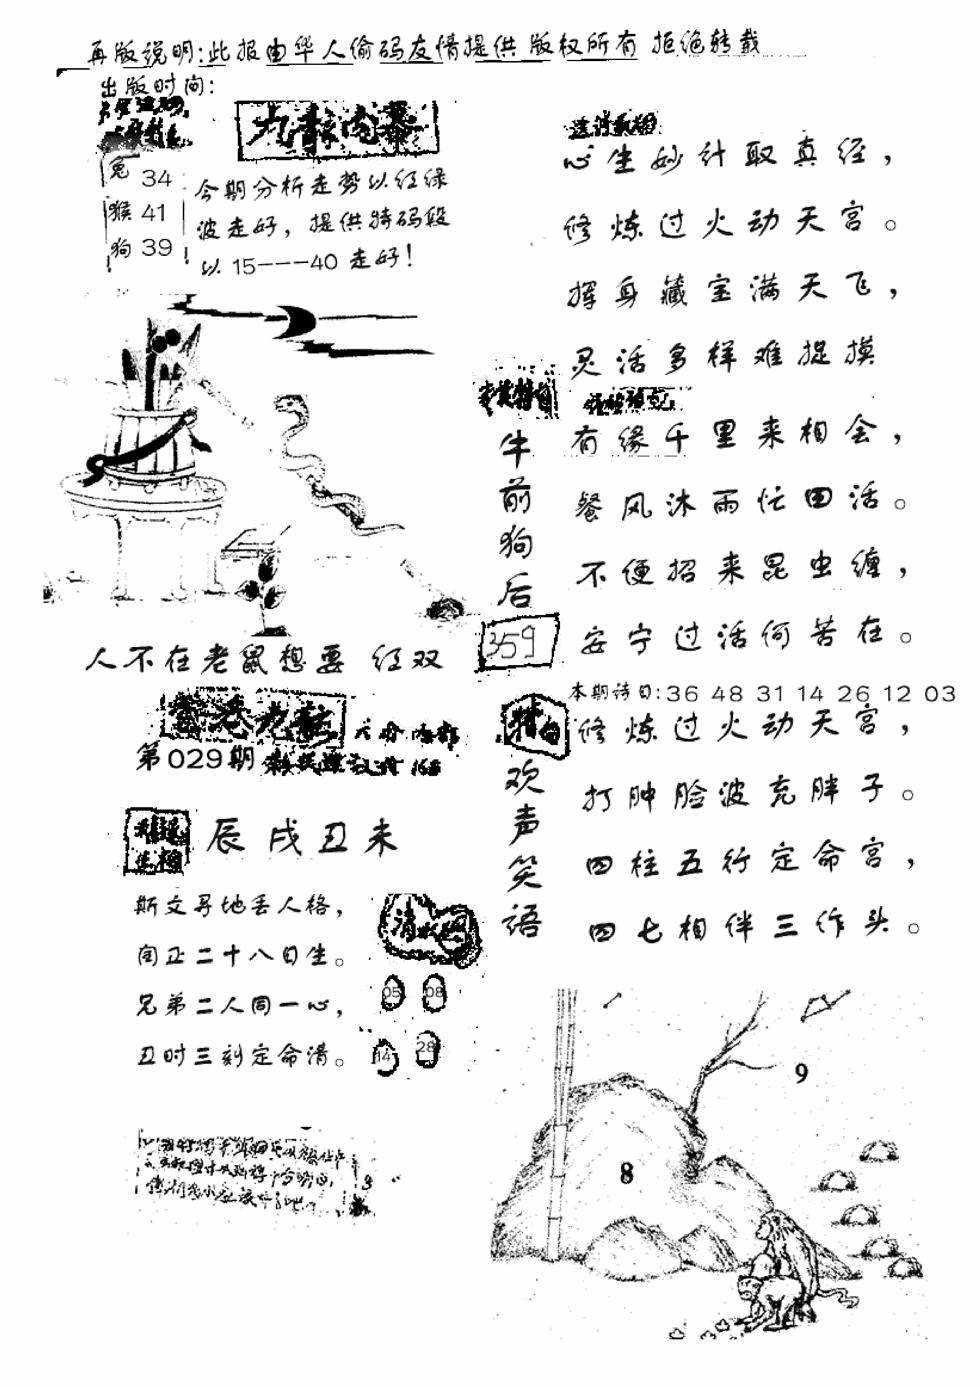 再版说明:此报由华人偷码友情提供 版权所有 拒绝转载
出版时间:
九龍内幕
兔 34
猴 41
狗 39
今期分析走势以红绿
波走好，提供特码段
以 15---40 走好!
人不在老鼠想要 红双
香港九龍
第029期
辰戌丑未
斯文寻地丢人格，
闰正二十八日生。
兄弟二人同一心，
丑时三刻定命清。
05 08
14 28
心生妙计取真经，
修炼过火动天宫。
挥身藏宝满天飞，
灵活多样难捉摸
牛前狗后
359
有缘千里来相会，
餐风沐雨忙田活。
不便招来昆虫缠，
安宁过活何苦在。
本期诗曰:36 48 31 14 26 12 03
欢声笑语
修炼过火动天宫，
打肿脸波充胖子。
四柱五行定命宫，
四七相伴三作头。
9
8